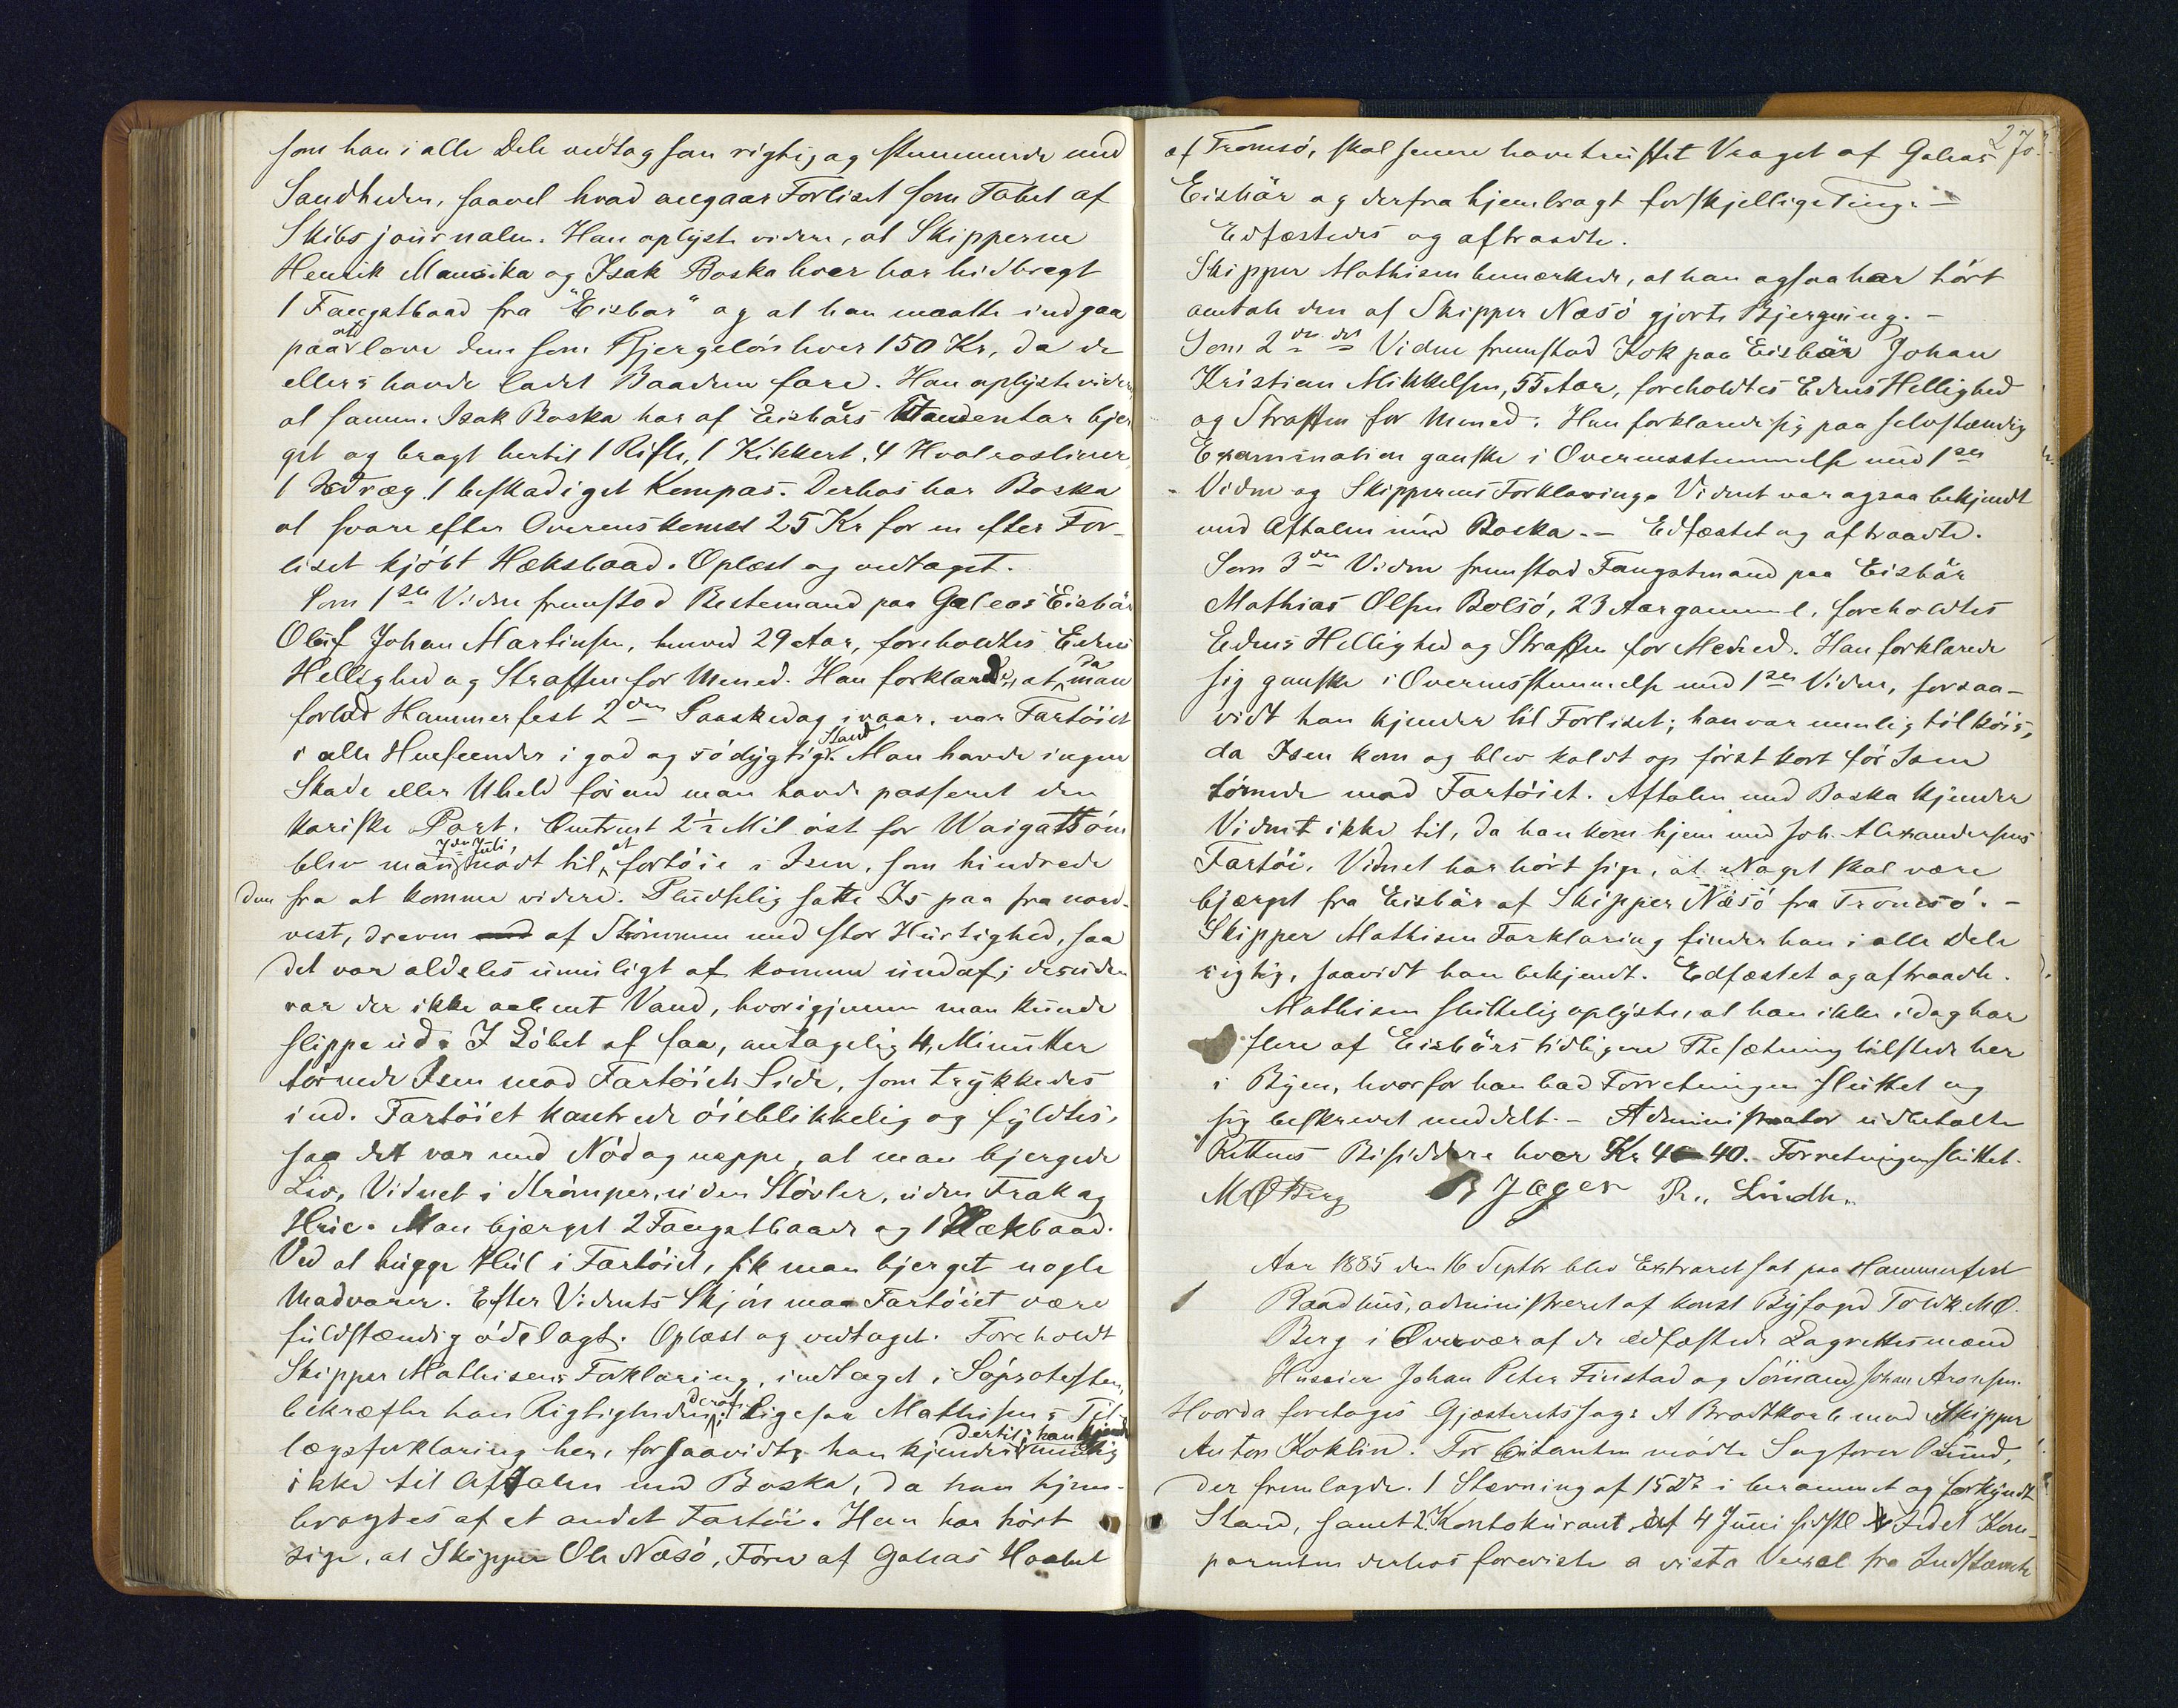 som han i alle Dele vedtog som rigtig og stemmende med
Sandheden, saavel hvad angaar Forliset som Tabet af
Skibsjournalen. Han oplyste videre, at Skipperne
Henrik Mansika og Isak Boska hver har hidbragt
1 Fangstbaad fra "Eisbär" og at han maatte indgaa
paa at love dem som Bjergelön hver 150 Kr, da de
ellers havde ladet Baadene fare. Han oplyste videre,
at samme Isak Boska har af Eisbärs Inventar bjer
get og bragt hertil 1 Rifle, 1 Kikkert, 4 Hvalrosliner,
1 Dræg, 1 beskadiget Kompas. Derhos har Boska
at svare efter Overenskomst 25 Kr for en efter For-
liset kjöbt Hæksbaad. Oplæst og vedtaget.
Som 1ste Vidne fremstod Bestemand paa Galeas Eisbär
Oluf Johan Martinsen, henved 29 Aar, foreholdtes Edens
Hellighed og Straffen for Mened. Han forklarede, at da man
forlod Hammerfest 2den Paaskedag ivaar, var Fartöiet
i alle Henseender i god og södygtig Stand. Man havde ingen
Skade eller Uheld förend man havde passeret den
kariske Port. Omtrent 2½ Mil öst for Waigattöen
blev man 7de Juli nödt til at fortöie i Isen, som hindrede
dem fra at komme videre. Pludselig satte Is paa fra nord-
vest, dreven af Strömmen med stor Hurtighed, saa
det var aldeles umuligt at komme undaf; desuden
var der ikke aabent Vand, hvorigjennem man kunde
slippe ud. I Löbet af faa, antagelig 4, Minutter
törnede Isen mod Fartöiets Side, som trykkedes
ind. Fartöiet kantrede öieblikkelig og fyldtes,
saa det var med Nöd og neppe, at man bjergede
Liv, Vidnet i Strömper, uden Stövler, uden Frak og
Hue. Man bjærget 2 Fangstbaade og 1 Hækbaad.
Ved at hugge Hul i Fartöiet, fik man bjerget nogle
Madvarer. Efter Vidnets Skjön maa Fartöiet være
fuldstændig ödelagt. Oplæst og vedtaget. Foreholdt
Skipper Mathisens Forklaring, indtaget i Söprotesten,
bekræfter han Rigtigheden deraf. Ligesaa Mathisens Til
lægsforklaring her, forsaavidt han kjender dertil; han kjender nemlig
ikke til Aftalen med Boska, da han hjem-
bragtes af et andet Fartöi. Han har hört
sige, at Skipper Ole Næsö, Förer af Galeas Haabet
270.
af Tromsö, skal senere have truffet Vraget af Galeas
Eisbär og derfra hjembragt forskjellige Ting. -
Edfæstedes og aftraadte.
Skipper Mathisen bemærkede, at han ogsaa har hört
omtale den af Skipper Næsö gjorte Bjergning. -
Som 2det Vidne fremstod Kok paa Eisbär Johan
Kristian Mikkelsen, 55 Aar, foreholdtes Edens Hellighed
og Straffen for Mened. Han forklarede sig paa selvstændig
Examination ganske i Overensstemmelse med 1ste
Vidne og Skipperens Forklaring. Vidnet var ogsaa bekjendt
med Aftalen med Boska. - Edfæstet og aftraadte.
Som 3die Vidne fremstod Fangstmand paa Eisbär
Mathias Olsen Bolsö, 23 Aar gammel, foreholdtes
Edens Hellighed og Straffen for Mened. Han forklarede
sig ganske i Overensstemmelse med 1ste Vidne, forsaa-
vidt han kjender til Forliset; han var nemlig tilköis,
da Isen kom og blev kaldt op först kort för Isen
törnede mod Fartöiet. Aftalen med Boska kjender
Vidnet ikke til, da han kom hjem med Joh. Alexandersens
Fartöi. Vidnet har hört sige, at Noget skal være
bjærget fra Eisbär af Skipper Næsö fra Tromsö. -
Skipper Mathisens Forklaring finder han i alle Dele
rigtig, saavidt han bekjendt. Edfæstet og aftraadte.
Mathisen sluttelig oplyste, at han ikke idag har
flere af Eisbärs tidligere Besætning tilstede her
i Byen, hvorfor han bad Forretningen sluttet og
sig beskrevet meddelt. - Administrator udbetalte
Rettens Bisiddere hver Kr 40. Forretningen sluttet.
M Ø Berg Jæger P. Lindh.
Aar 1885 den 16 Septbr blev Extraret sat paa Hammerfest
Raadhus, administreret af konst Byfoged Toldk. M Ø.
Berg i Overvær af de edfæstede Lagrettesmænd
Huseier Johan Peter Finstad og Sömand Johan Aronsen.
Hvorda foretoges Gjæsteretssag: A Brodtkorb mod Skipper
Anton Koklin. For Citanten mödte Sagförer Lund,
der fremlagde 1 Stævning af 15 Ds i berammet og forkyndt
Stand, samt 2. Kontokurant af 4 Juni sidstl. Idet Kom-
parenten derhos foreviste a vista Vexel fra Indstævnte